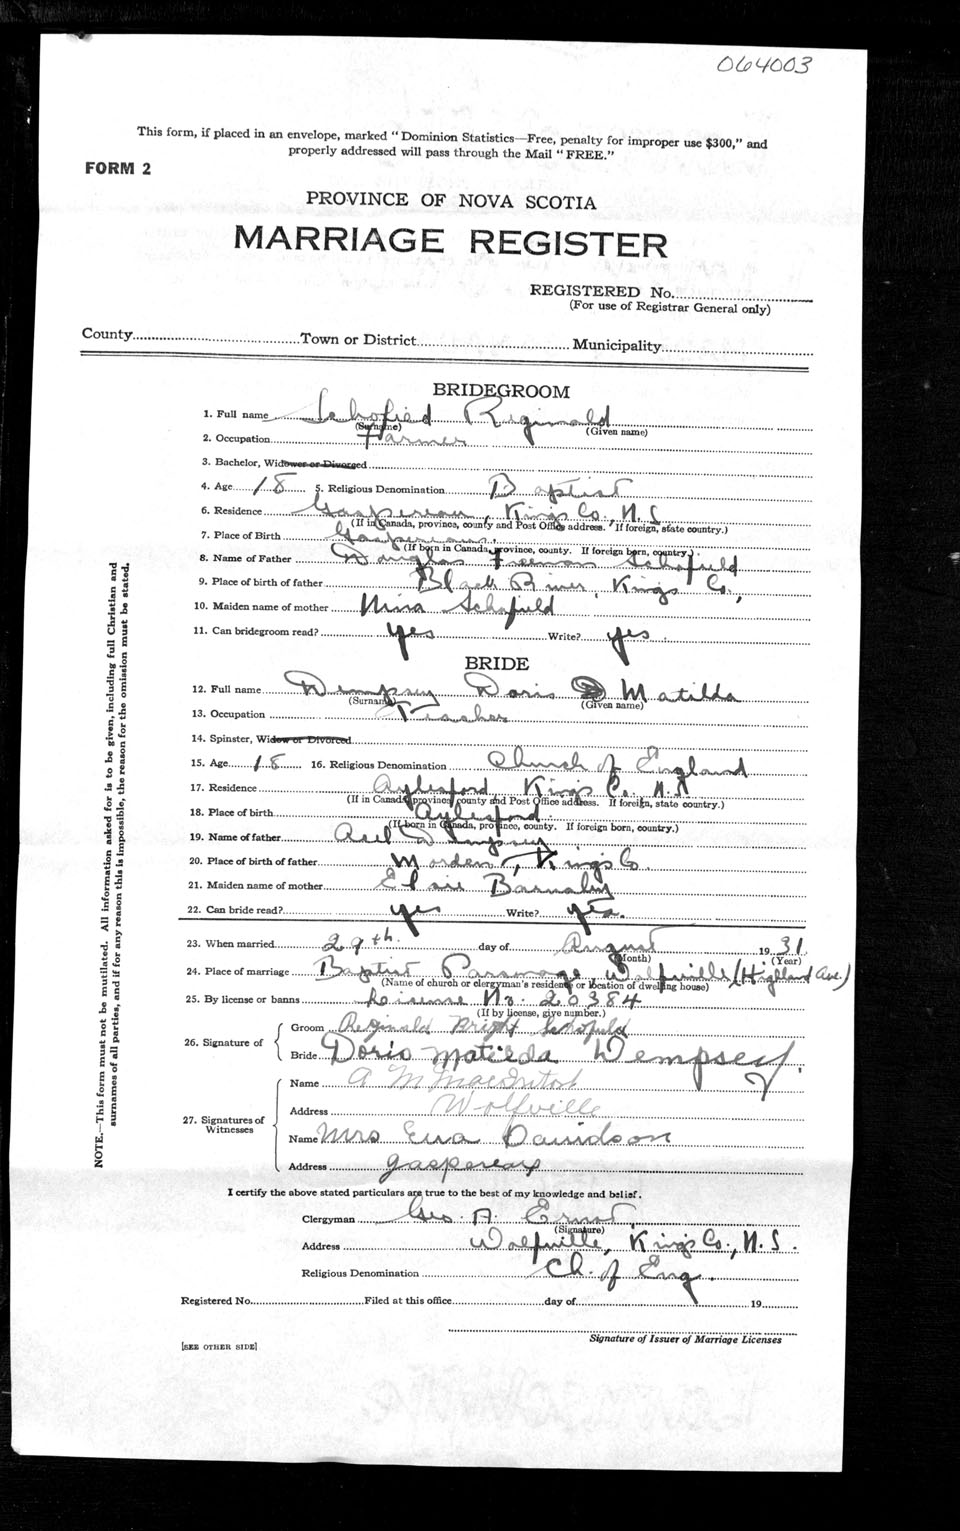 064003
This form, if placed in an envelope, marked "Dominion Statistics—Free, penalty for improper use $300," and
properly addressed will pass through the Mail "FREE."
FORM 2
PROVINCE OF NOVA SCOTIA
MARRIAGE REGISTER
REGISTERED No.
(For use of Registrar General only)
County Town or District Municipality
BRIDEGROOM
1. Full name Schofield Reginald
(Surname) (Given name)
2. Occupation Farmer
3. Bachelor, Widower or Divorced
4. Age 18 5. Religious Denomination Baptist
6. Residence Gaspereau, Kings Co., N.S
(If in Canada, province, county and Post Office address. If foreign, state country.)
7. Place of Birth Gaspereau
(If born in Canada, province, county. If foreign born, country.)
8. Name of Father Douglas Freeman Schofield
9. Place of birth of father Black River, Kings Co.,
10. Maiden name of mother Nina Schofield
11. Can bridegroom read? yes Write? yes
BRIDE
12. Full name Dempsey Doris Matilda
(Surname) (Given name)
13. Occupation Teacher
14. Spinster, Widow or Divorced
15. Age 18 16. Religious Denomination Church of England
17. Residence Aylesford Kings Co. N.S
(If in Canada, province, county and Post Office address. If foreign, state country.)
18. Place of birth Aylesford.
(If born in Canada, province, county. If foreign born, country.)
19. Name of father Dempsey
20. Place of birth of father Morden, King's Co.
21. Maiden name of mother Elsie Barnaby
22. Can bride read? yes Write? yes.
23. When married 29th. day of August 1931
(Month) (Year)
24. Place of marriage Baptist Parsonage, Wolfville (Highland Ave.)
(Name of church or clergyman's residence or location of dwelling house)
25. By license or banns Leisense No. 20384
(If by license, give number.)
26. Signature of
Groom Reginald Bright Schofield
Bride Doris Matilda Dempsey.
27. Signatures of
Witnesses
Name A M MacIntosh
Address Wolfville
Name Mrs Eva Davidson
Address gaspereax
I certify the above stated particulars are true to the best of my knowledge and belief.
Clergyman Geo. A. Ernst
(Signature)
Address Wolfville, Kings Co., N.S.
Religious Denomination Ch. of Eng.
Registered No. Filed at this office day of 19
Signature of Issuer of Marriage Licenses
[SEE OTHER SIDE]
NOTE.—This form must not be mutilated. All information asked for is to be given, including full Christian and
surnames of all parties, and if for any reason this is impossible, the reason for the omission must be stated.